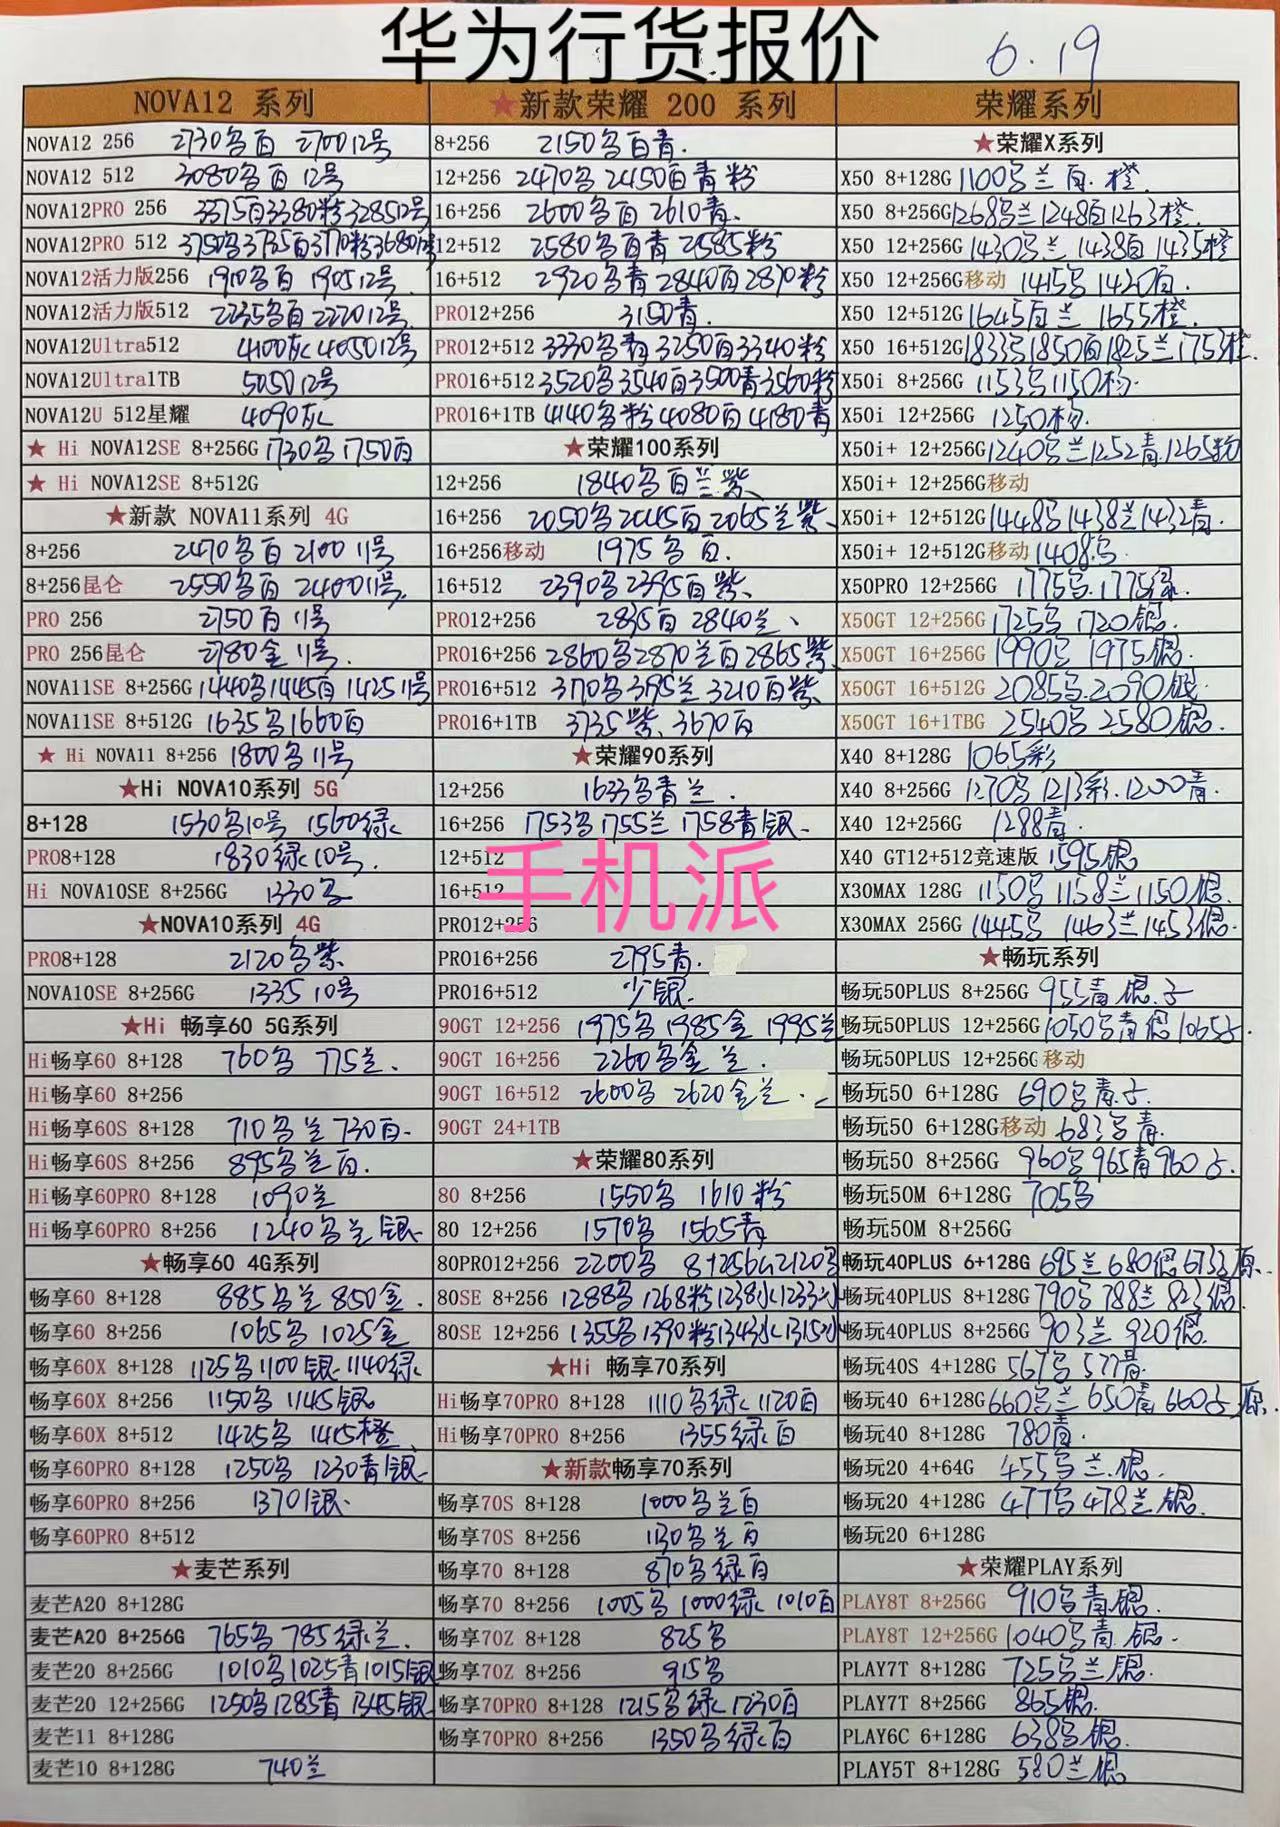 华为行货报价
6.19
NOVA12 系列
NOVA12 256 2730乌白 2700 12号
NOVA12 512 3080乌白 12号
NOVA12PRO 256 3375白3380粉3285 12号
NOVA12PRO 512 3750乌3735白3770粉3680 12号
NOVA12活力版256 1910乌白 1905 12号
NOVA12活力版512 2235乌白2220 12号
NOVA12Ultra512 4100灰 4050 12号
NOVA12Ultra1TB 5050 12号
NOVA12U 512星耀 4090灰
★ Hi NOVA12SE 8+256G 1730乌 1750白
★ Hi NOVA12SE 8+512G
★新款 NOVA11系列 4G
8+256 2470乌白 2100 11号
8+256昆仑 2550乌白 2400 11号
PRO 256 2750白 11号
PRO 256昆仑 2780金 11号
NOVA11SE 8+256G 1440乌1445白 1425 11号
NOVA11SE 8+512G 1635乌1660白
★ Hi NOVA11 8+256 1800乌 11号
★Hi NOVA10系列 5G
8+128 1530乌10号 1560绿
PRO8+128 1830绿 10号.
Hi NOVA10SE 8+256G 1330乌
★NOVA10系列 4G
PRO8+128 2120乌紫
NOVA10SE 8+256G 1335 10号
★Hi 畅享60 5G系列
Hi畅享60 8+128 760乌 775兰.
Hi畅享60 8+256
Hi畅享60S 8+128 710乌兰730白.
Hi畅享60S 8+256 895乌兰白.
Hi畅享60PRO 8+128 1090兰
Hi畅享60PRO 8+256 1240乌兰银
★畅享60 4G系列
畅享60 8+128 885乌兰 850金.
畅享60 8+256 1065乌 1025金
畅享60X 8+128 1125乌1100银 1140绿
畅享60X 8+256 1150乌 1145银
畅享60X 8+512 1425乌 1415橙
畅享60PRO 8+128 1250乌 1230青银
畅享60PRO 8+256 1370银.
畅享60PRO 8+512
★麦芒系列
麦芒A20 8+128G
麦芒A20 8+256G 765乌785绿兰.
麦芒20 8+256G 1010乌1025青1015银
麦芒20 12+256G 1250乌1285青 1345银
麦芒11 8+128G
麦芒10 8+128G 740兰
★新款荣耀 200 系列
8+256 2150乌白青.
12+256 2470乌 2450白青粉
16+256 2600乌白 2610青.
12+512 2580乌白青 2585粉
16+512 2920乌青2840白2870粉
PRO12+256 3150青.
PRO12+512 3330乌青3250白3340粉
PRO16+512 3520乌3540白3500青3560粉
PRO16+1TB 4140乌粉4080白4180青
★荣耀100系列
12+256 1840乌白兰紫
16+256 2050乌2045白2065兰紫
16+256移动 1975乌白.
16+512 2390乌2395白紫
PRO12+256 2835白2840兰
PRO16+256 2860乌2870兰白2865紫
PRO16+512 3170乌3195兰3210白紫
PRO16+1TB 3735紫. 3670白
★荣耀90系列
12+256 1633乌青兰.
16+256 1753乌1755兰1758青银.
12+512
手机派
16+512
PRO12+256
PRO16+256 2795青.
PRO16+512 少银.
90GT 12+256 1975乌1985金 1995兰
90GT 16+256 2260乌金兰.
90GT 16+512 2600乌 2620金兰.
90GT 24+1TB
★荣耀80系列
80 8+256 1550乌 1610粉
80 12+256 1570乌 1565青
80PRO12+256 2200乌 8+256G2120乌
80SE 8+256 1288乌1268粉1238水1233
80SE 12+256 1355乌1390粉1343水1315
★Hi 畅享70系列
Hi畅享70PRO 8+128 1110乌绿1120白
Hi畅享70PRO 8+256 1355绿白
★新款畅享70系列
畅享70S 8+128 1000乌兰白
畅享70S 8+256 1130乌兰白
畅享70 8+128 870乌绿白
畅享70 8+256 1005乌1000绿 1010白
畅享70Z 8+128 825乌
畅享70Z 8+256 915乌
畅享70PRO 8+128 1215乌绿1230白
畅享70PRO 8+256 1350乌绿白
荣耀系列
★荣耀X系列
X50 8+128G 1100乌兰白.橙.
X50 8+256G 1268乌兰1248白1263橙
X50 12+256G 1430乌兰1438白 1435橙
X50 12+256G移动 1415乌1420白.
X50 12+512G 1645白兰 1655橙.
X50 16+512G 1833乌1850白1825兰1753橙.
X50i 8+256G 1153乌1150粉.
X50i 12+256G 1250粉.
X50i+ 12+256G 1240乌兰1252青1265粉
X50i+ 12+256G移动
X50i+ 12+512G 1448乌1438兰1432青.
X50i+ 12+512G移动 1408乌.
X50PRO 12+256G 1775乌.1775绿.
X50GT 12+256G 1725乌 1720银.
X50GT 16+256G 1990乌 1975银.
X50GT 16+512G 2085乌.2090银
X50GT 16+1TBG 2540乌 2580银.
X40 8+128G 1065彩
X40 8+256G 1270乌1213彩.1200青.
X40 12+256G 1288青.
X40 GT12+512竞速版 1595银
X30MAX 128G 1150乌1158兰1150银.
X30MAX 256G 1445乌 1463兰1453银.
★畅玩系列
畅玩50PLUS 8+256G 955青银.子
畅玩50PLUS 12+256G 1050乌青银1065子.
畅玩50PLUS 12+256G 移动
畅玩50 6+128G 690乌青.子.
畅玩50 6+128G移动 683乌青.
畅玩50 8+256G 960乌965青960子.
畅玩50M 6+128G 705乌
畅玩50M 8+256G
畅玩40PLUS 6+128G 695兰680银673原.
畅玩40PLUS 8+128G 790乌788兰823银.
畅玩40PLUS 8+256G 903兰 920银.
畅玩40S 4+128G 567乌577青.
畅玩40 6+128G 660乌兰 650青660子原.
畅玩40 8+128G 780青.
畅玩20 4+64G 455乌兰.银.
畅玩20 4+128G 477乌478兰银.
畅玩20 6+128G
★荣耀PLAY系列
PLAY8T 8+256G 910乌青银.
PLAY8T 12+256G 1040乌青银.
PLAY7T 8+128G 725乌兰银.
PLAY7T 8+256G 865银.
PLAY6C 6+128G 638乌银.
PLAY5T 8+128G 580兰银